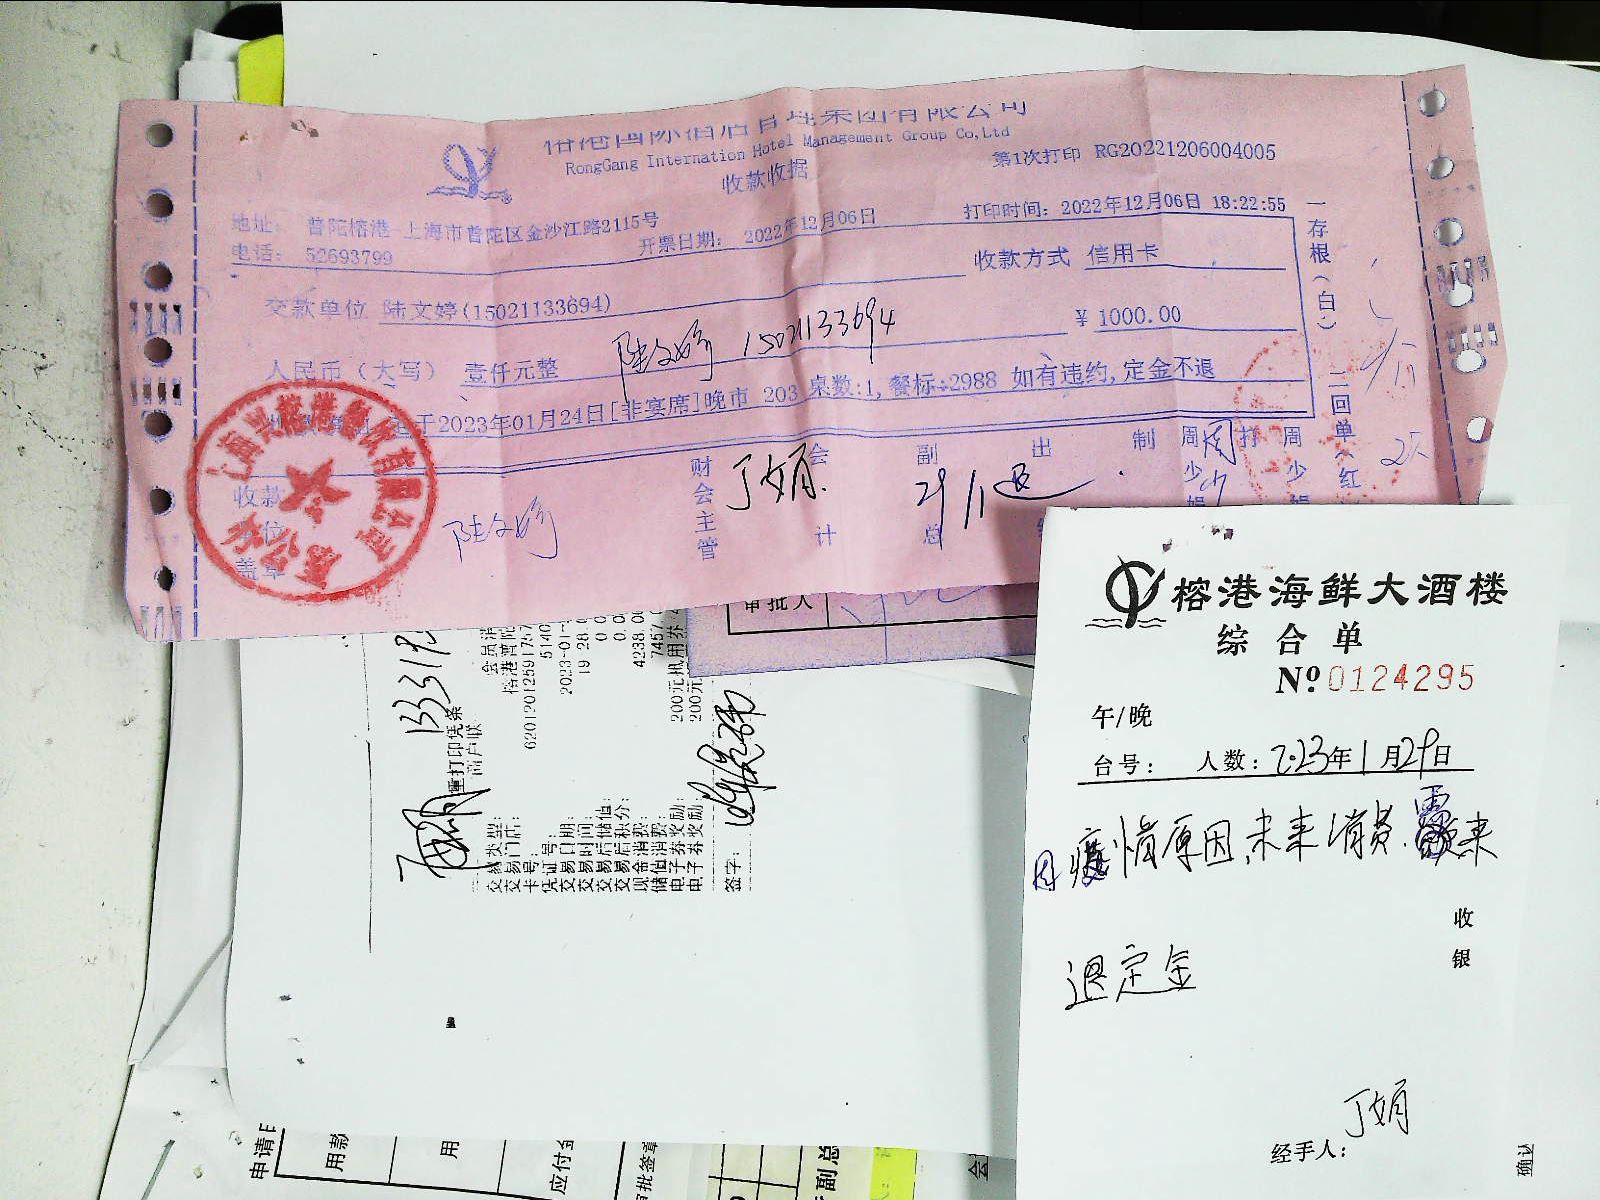 榕港国际酒店管理集团有限公司
RongGang Internation Hotel Management Group Co,Ltd
收款收据
第1次打印 RG20221206004005
地址： 普陀榕港 上海市普陀区金沙江路2115号
电话： 52693799
开票日期： 2022年12月06日
打印时间：2022年12月06日 18:22:55
收款方式 信用卡
交款单位 陆文婷(15021133694)
¥ 1000.00
人民币（大写） 壹仟元整
陆文婷 15021133694
于2023年01月24日[非宴席]晚市 203 桌数:1, 餐标:2988 如有违约,定金不退
一存根(白) 二回单(红
收款
单位
盖章
陆文婷
财会主管
丁娟
会计
副总
出
制
周少娟
打
周少娟
审批人
重打印凭条
商户联
交易类型：
交易门店： 榕港普陀
卡号： 6201201259175
凭证号： 5140
交易日期： 2023-01-
交易时间： 19 28
交易后储值：
交易后积分：
现金消费：
储值消费： 4238.00
电子券奖励： 200元抵用券
电子券奖励： 200元
签字：
榕港海鲜大酒楼
综合单
№ 0124295
午/晚
台号： 人数： 2023年1月29日
因疫情原因,未来消费.需来
收银
退定金
丁娟
经手人：
申请日
用款
用
应付金
审批签章
副总
会
确认